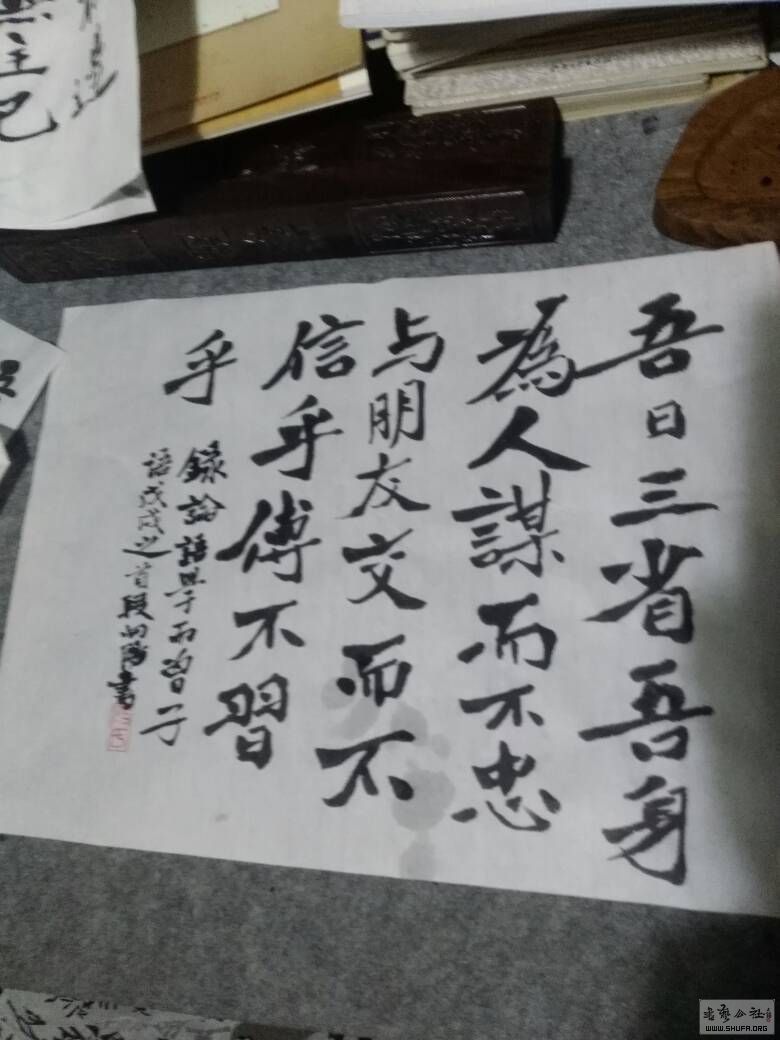 吾日三省吾身
為人謀而不忠
与朋友交而不
信乎傅不習
乎
録論語學而曾子
語戊戌之首段向陽書
無主已
書藝公社
WWW.SHUFA.ORG